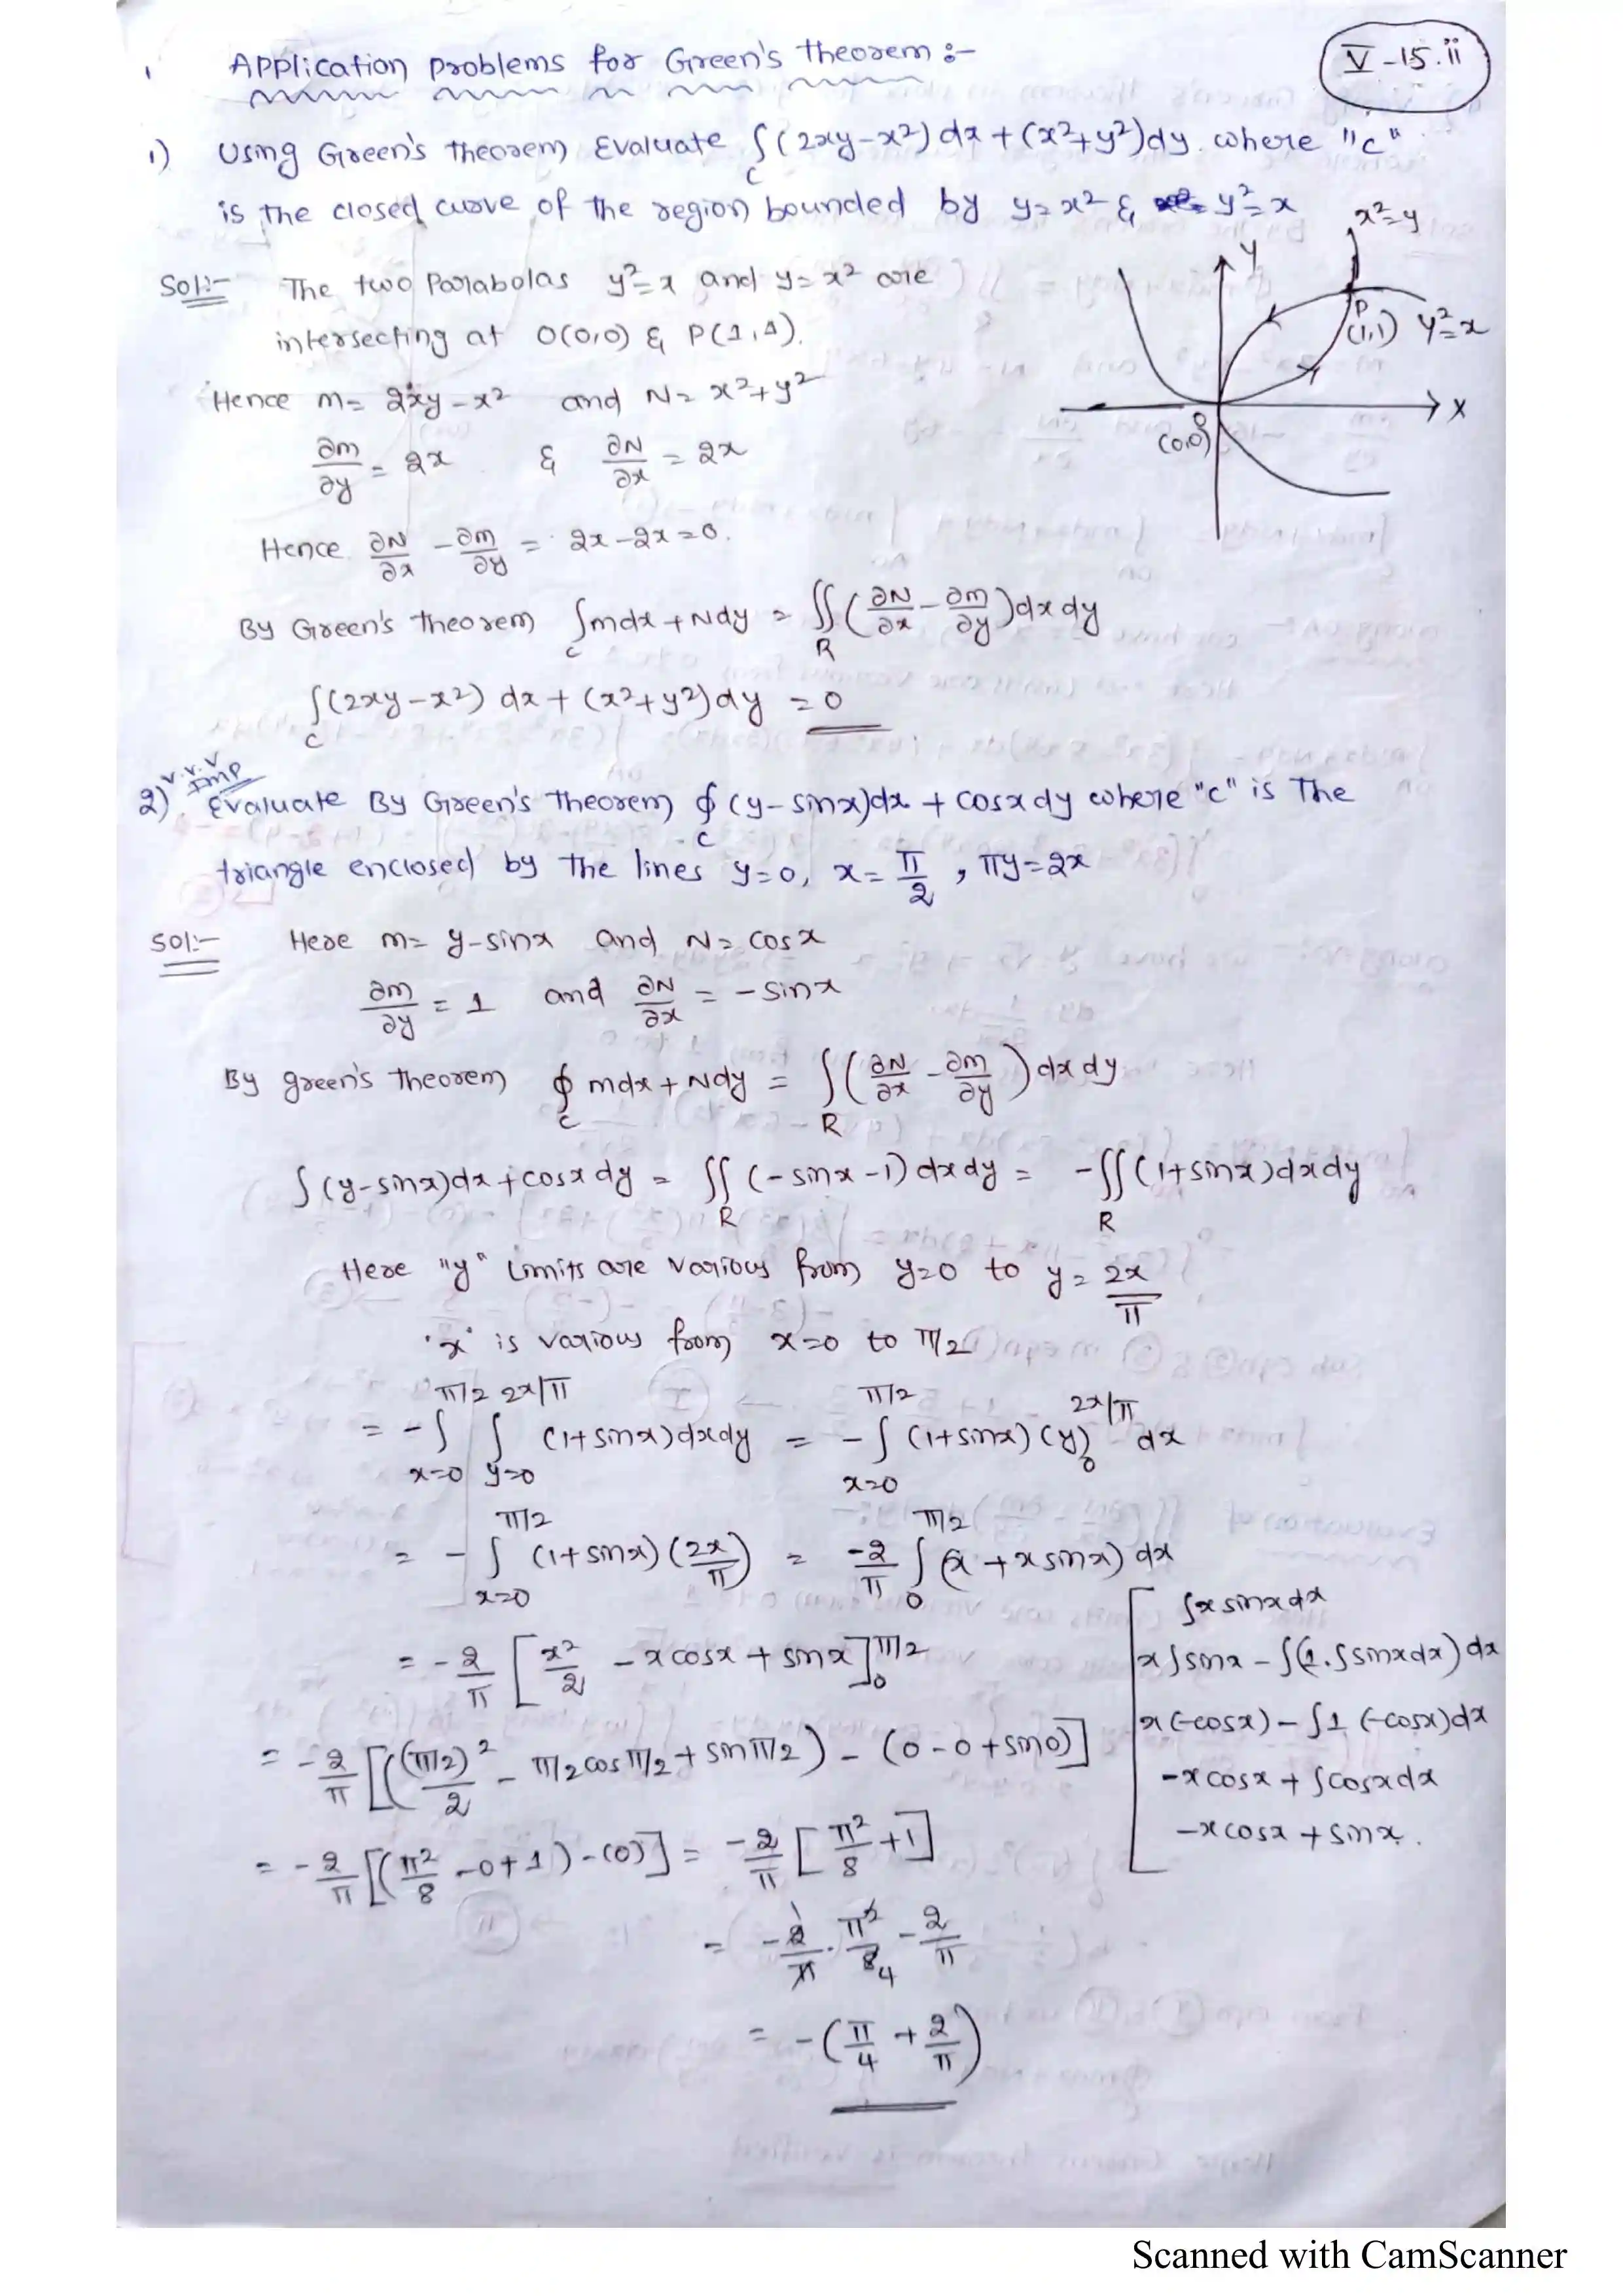 Application problems for Green's theorem :-
V-15.ii
1) Using Green's theorem Evaluate ∫c (2xy-x²) dx + (x²+y²)dy. where "c"
is the closed curve of the region bounded by y=x² & y²=x
x²=y
Y
P
(1,1)
y²=x
X
O
(0,0)
Sol:- The two Parabolas y²=x and y=x² are
intersecting at O(0,0) & P(1,1).
Hence m= 2xy-x² and N= x²+y²
∂m/∂y = 2x & ∂N/∂x = 2x
Hence ∂N/∂x - ∂m/∂y = 2x-2x=0.
By Green's theorem ∫c mdx+Ndy = ∬R (∂N/∂x - ∂m/∂y)dxdy
∫c (2xy-x²) dx + (x²+y²)dy = 0
v.v.v
Imp
2). Evaluate By Green's theorem ∮c (y-sinx)dx + cosx dy where "c" is The
triangle enclosed by the lines y=0, x=π/2, πy=2x
Sol:- Here m= y-sinx and N= cosx
∂m/∂y = 1 and ∂N/∂x = -sinx
By green's theorem ∮c mdx+Ndy = ∫R (∂N/∂x - ∂m/∂y) dxdy
∫(y-sinx)dx+cosx dy = ∬R (-sinx-1)dxdy = -∬R (1+sinx)dxdy
Here "y" limits are various from y=0 to y= 2x/π
'x' is various from x=0 to π/2
= -∫x=0^π/2 ∫y=0^2x/π (1+sinx)dxdy = -∫x=0^π/2 (1+sinx)(y)0^2x/π dx
= -∫x=0^π/2 (1+sinx)(2x/π) = -2/π ∫0^π/2 (x+xsinx)dx
= -2/π [x²/2 - xcosx + sinx]0^π/2
= -2/π [((π/2)²/2 - π/2 cosπ/2 + sinπ/2) - (0-0+sin0)]
= -2/π [(π²/8 -0+1)-(0)] = -2/π [π²/8 +1]
= -2/π . π²/8 4 - 2/π
= -(π/4 + 2/π)
∫xsinxdx
x∫sinx - ∫(1.∫sinxdx)dx
x(-cosx) - ∫1 (-cosx)dx
-xcosx + ∫cosxdx
-xcosx + sinx.
Scanned with CamScanner